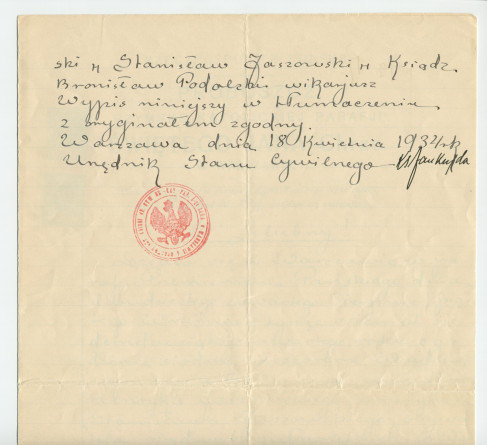 ski „ Stanisław Zaszowski „ Ksiądz
Bronisław Podolski wikarjusz
Wypis niniejszy w tłumaczeniu
z oryginałem zgodny.
Warszawa dnia 18 Kwietnia 1932 rk
Urzędnik Stanu Cywilnego